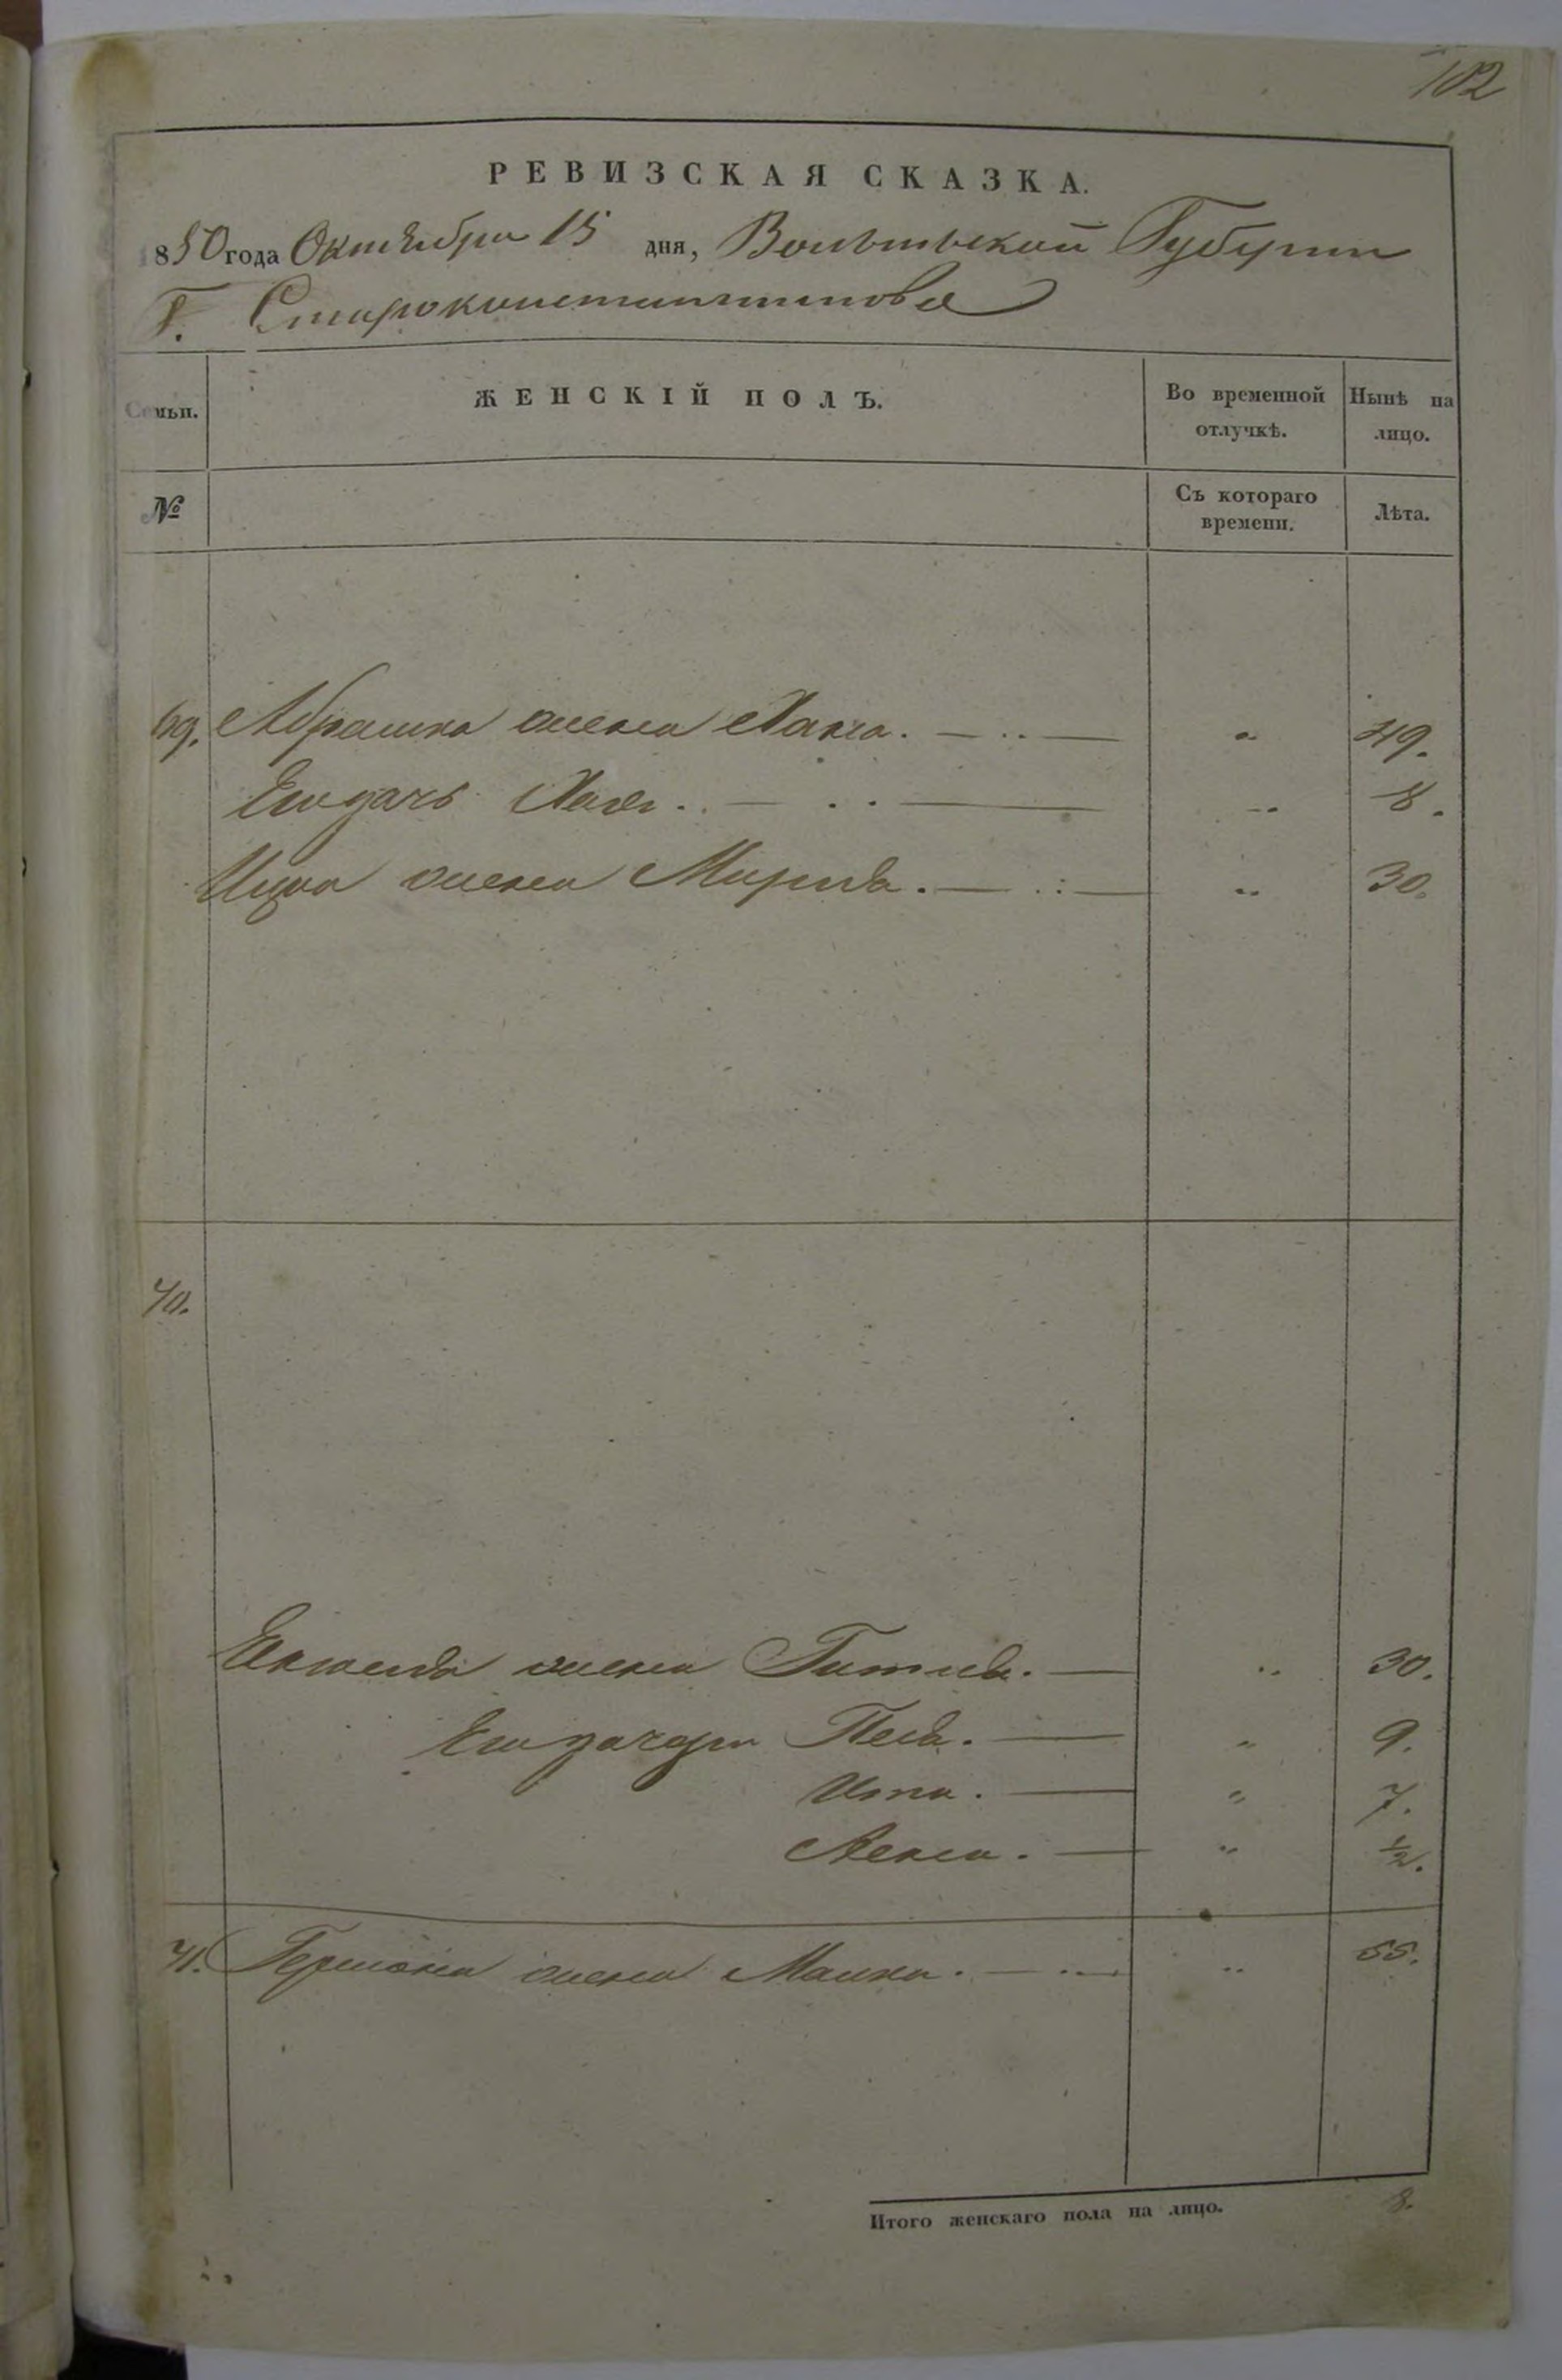 102
РЕВИЗСКАЯ СКАЗКА.
1850 года Октября 15 дня, Волынской Губернии
Г. Староконстантинова
Семьи.
ЖЕНСКІЙ ПОЛЪ.
Во временной отлучкѣ.
Нынѣ на лицо.
№
Съ котораго времени.
Лѣта.
69. Абрашка жена Хана. — .. — „ 49.
Его дочь Хая. — .. — „ 8.
Ицка жена Мирля. — .. — „ 30.
70.
жена Гитля. — „ 30.
Его дочери Песя. — „ 9.
Ита. — „ 7.
„ ½.
71. Гершона жена Малка. — .. — „ 55.
Итого женскаго пола на лицо. 8.